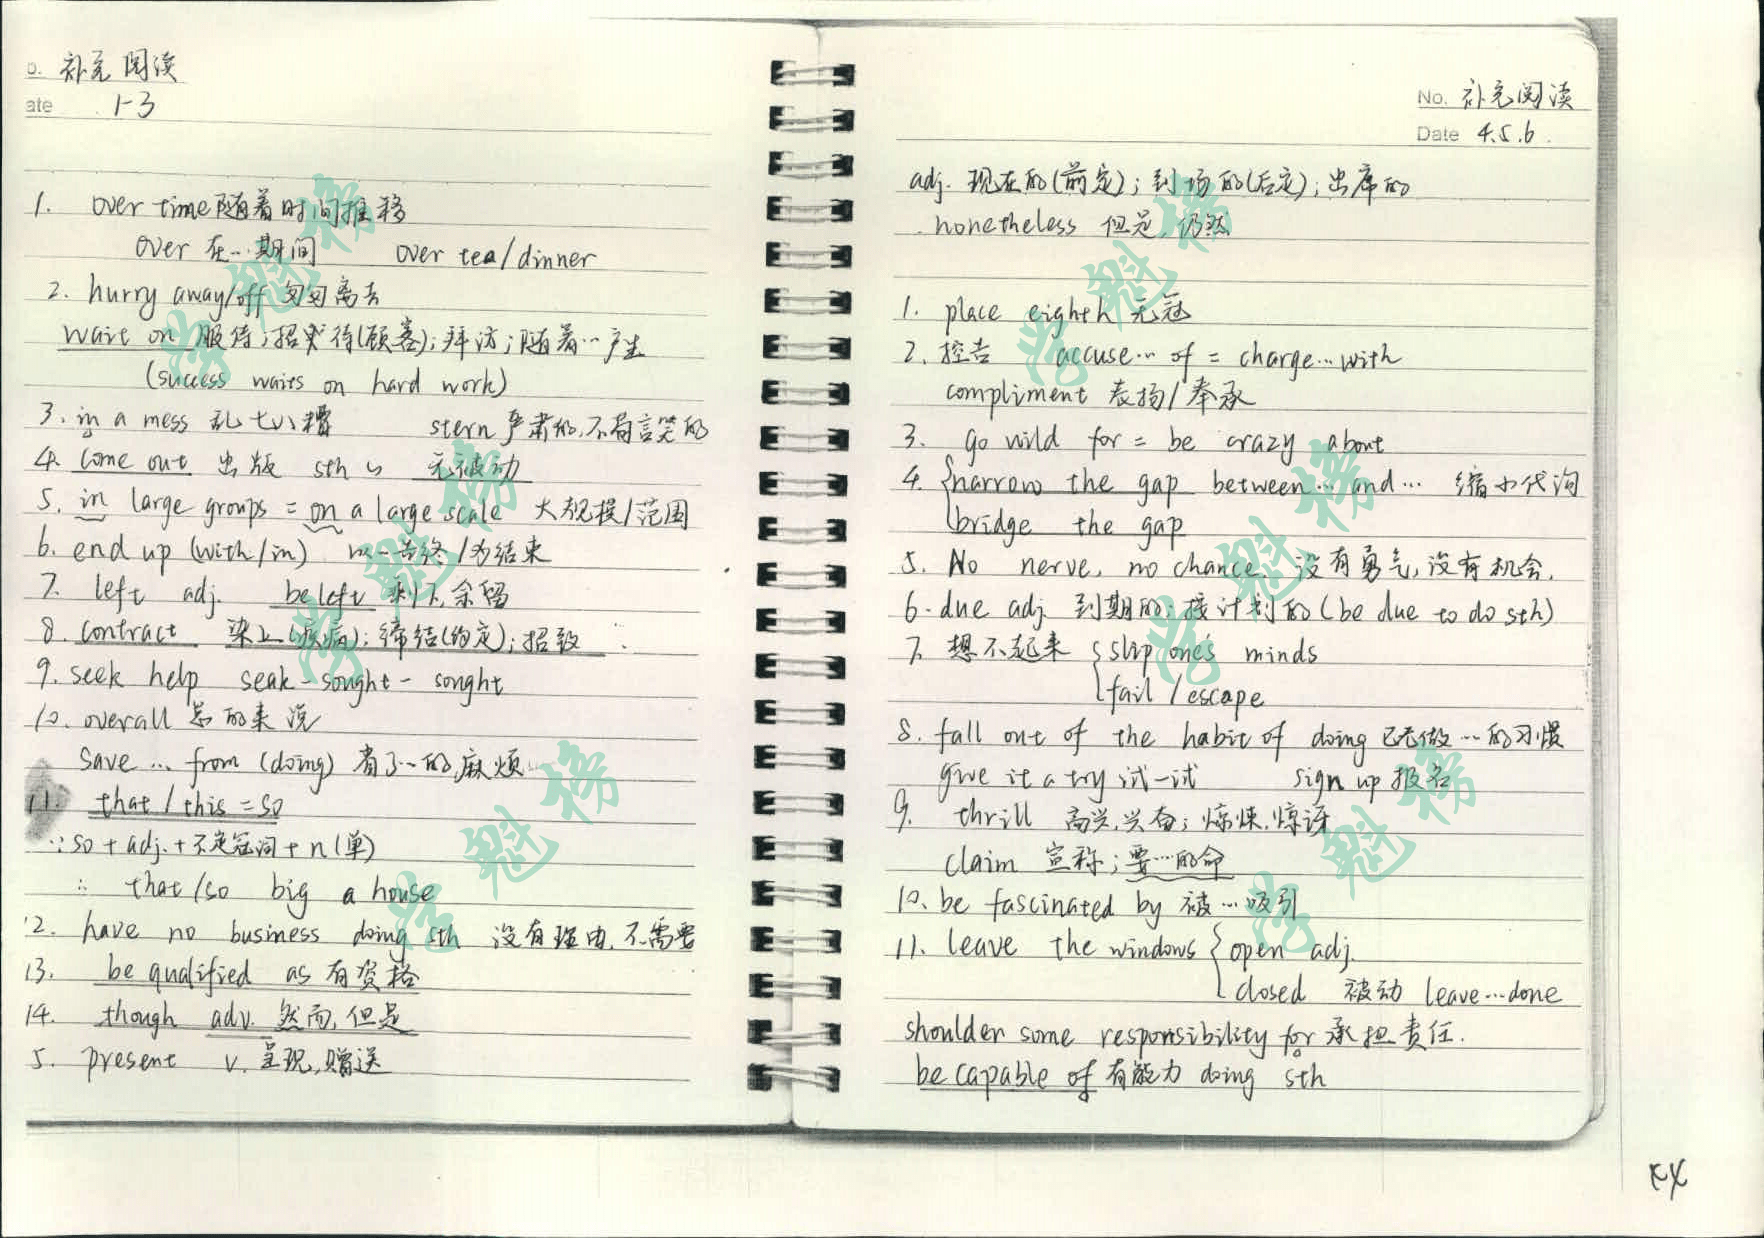 o. 补充阅读
ate 1-3
1. over time 随着时间推移
over 在…期间 over tea/dinner
2. hurry away/off 匆匆离去
wait on 服侍;招待(顾客);拜访;随着…产生
(success waits on hard work)
3. in a mess 乱七八糟 stern 严肃的,不苟言笑的
4. come out 出版 sth 无被动
5. in large groups = on a large scale 大规模/范围
6. end up (with/in) 以…告终/为结束
7. left adj. be left 剩下,余留
8. contract 染上(疾病);缔结(约定);招致
9. seek help seak-sought-sought
10. overall 总的来说
save … from (doing) 省了…的麻烦
11. that/this = so
∵ so + adj. + 不定冠词 + n(单)
∴ that/so big a house
12. have no business doing sth 没有理由,不需要
13. be qualified as 有资格
14. though adv. 然而,但是
5. present v. 呈现,赠送
No. 补充阅读
Date 4.5.6.
adj. 现在的(前定);到场的(后定);出席的
nonetheless 但是,仍然
1. place eighth 无冠
2. 控告 accuse…of = charge…with
compliment 表扬/奉承
3. go wild for = be crazy about
4. {narrow the gap between…and… 缩小代沟
bridge the gap
5. No nerve, no chance. 没有勇气,没有机会.
6. due adj. 到期的;按计划的(be due to do sth)
7. 想不起来 {slip one's minds
fail/escape
8. fall out of the habit of doing 已无做…的习惯
give it a try 试一试 sign up 报名
9. thrill 高兴,兴奋;惊悚,惊讶
claim 宣称;要…的命
10. be fascinated by 被…吸引
11. leave the windows {open adj.
closed 被动 leave…done
shoulder some responsibility for 承担责任.
be capable of 有能力 doing sth
学魁榜
学魁榜
学魁榜
学魁榜
学魁榜
学魁榜